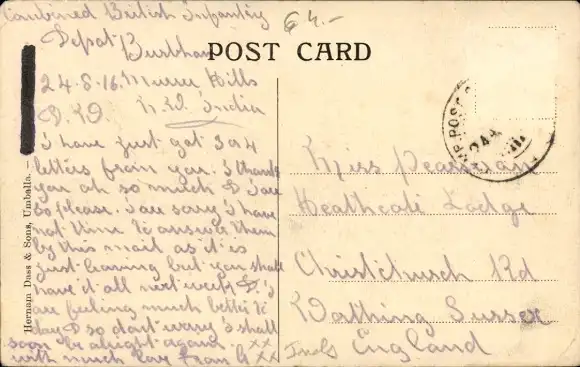 Combined British Infantry
Depot Burbhan
24.8.16. Murree Hills
N.W. India
64.-
POST CARD
I have just got 3 or 4
letters from you. I thank
you oh so much D I am
so please. I am sorry I have
not time to answer them
by this mail as it is
just leaving but you shall
have it all next week D. I
am feeling much better to
day D so don't worry I shall
soon be alright again. xx
with much love from G xx
Miss Pearman
Heathcote Lodge
Christchurch Rd
Worthing Sussex
England
Hernam Dass & Sons, Umballa.